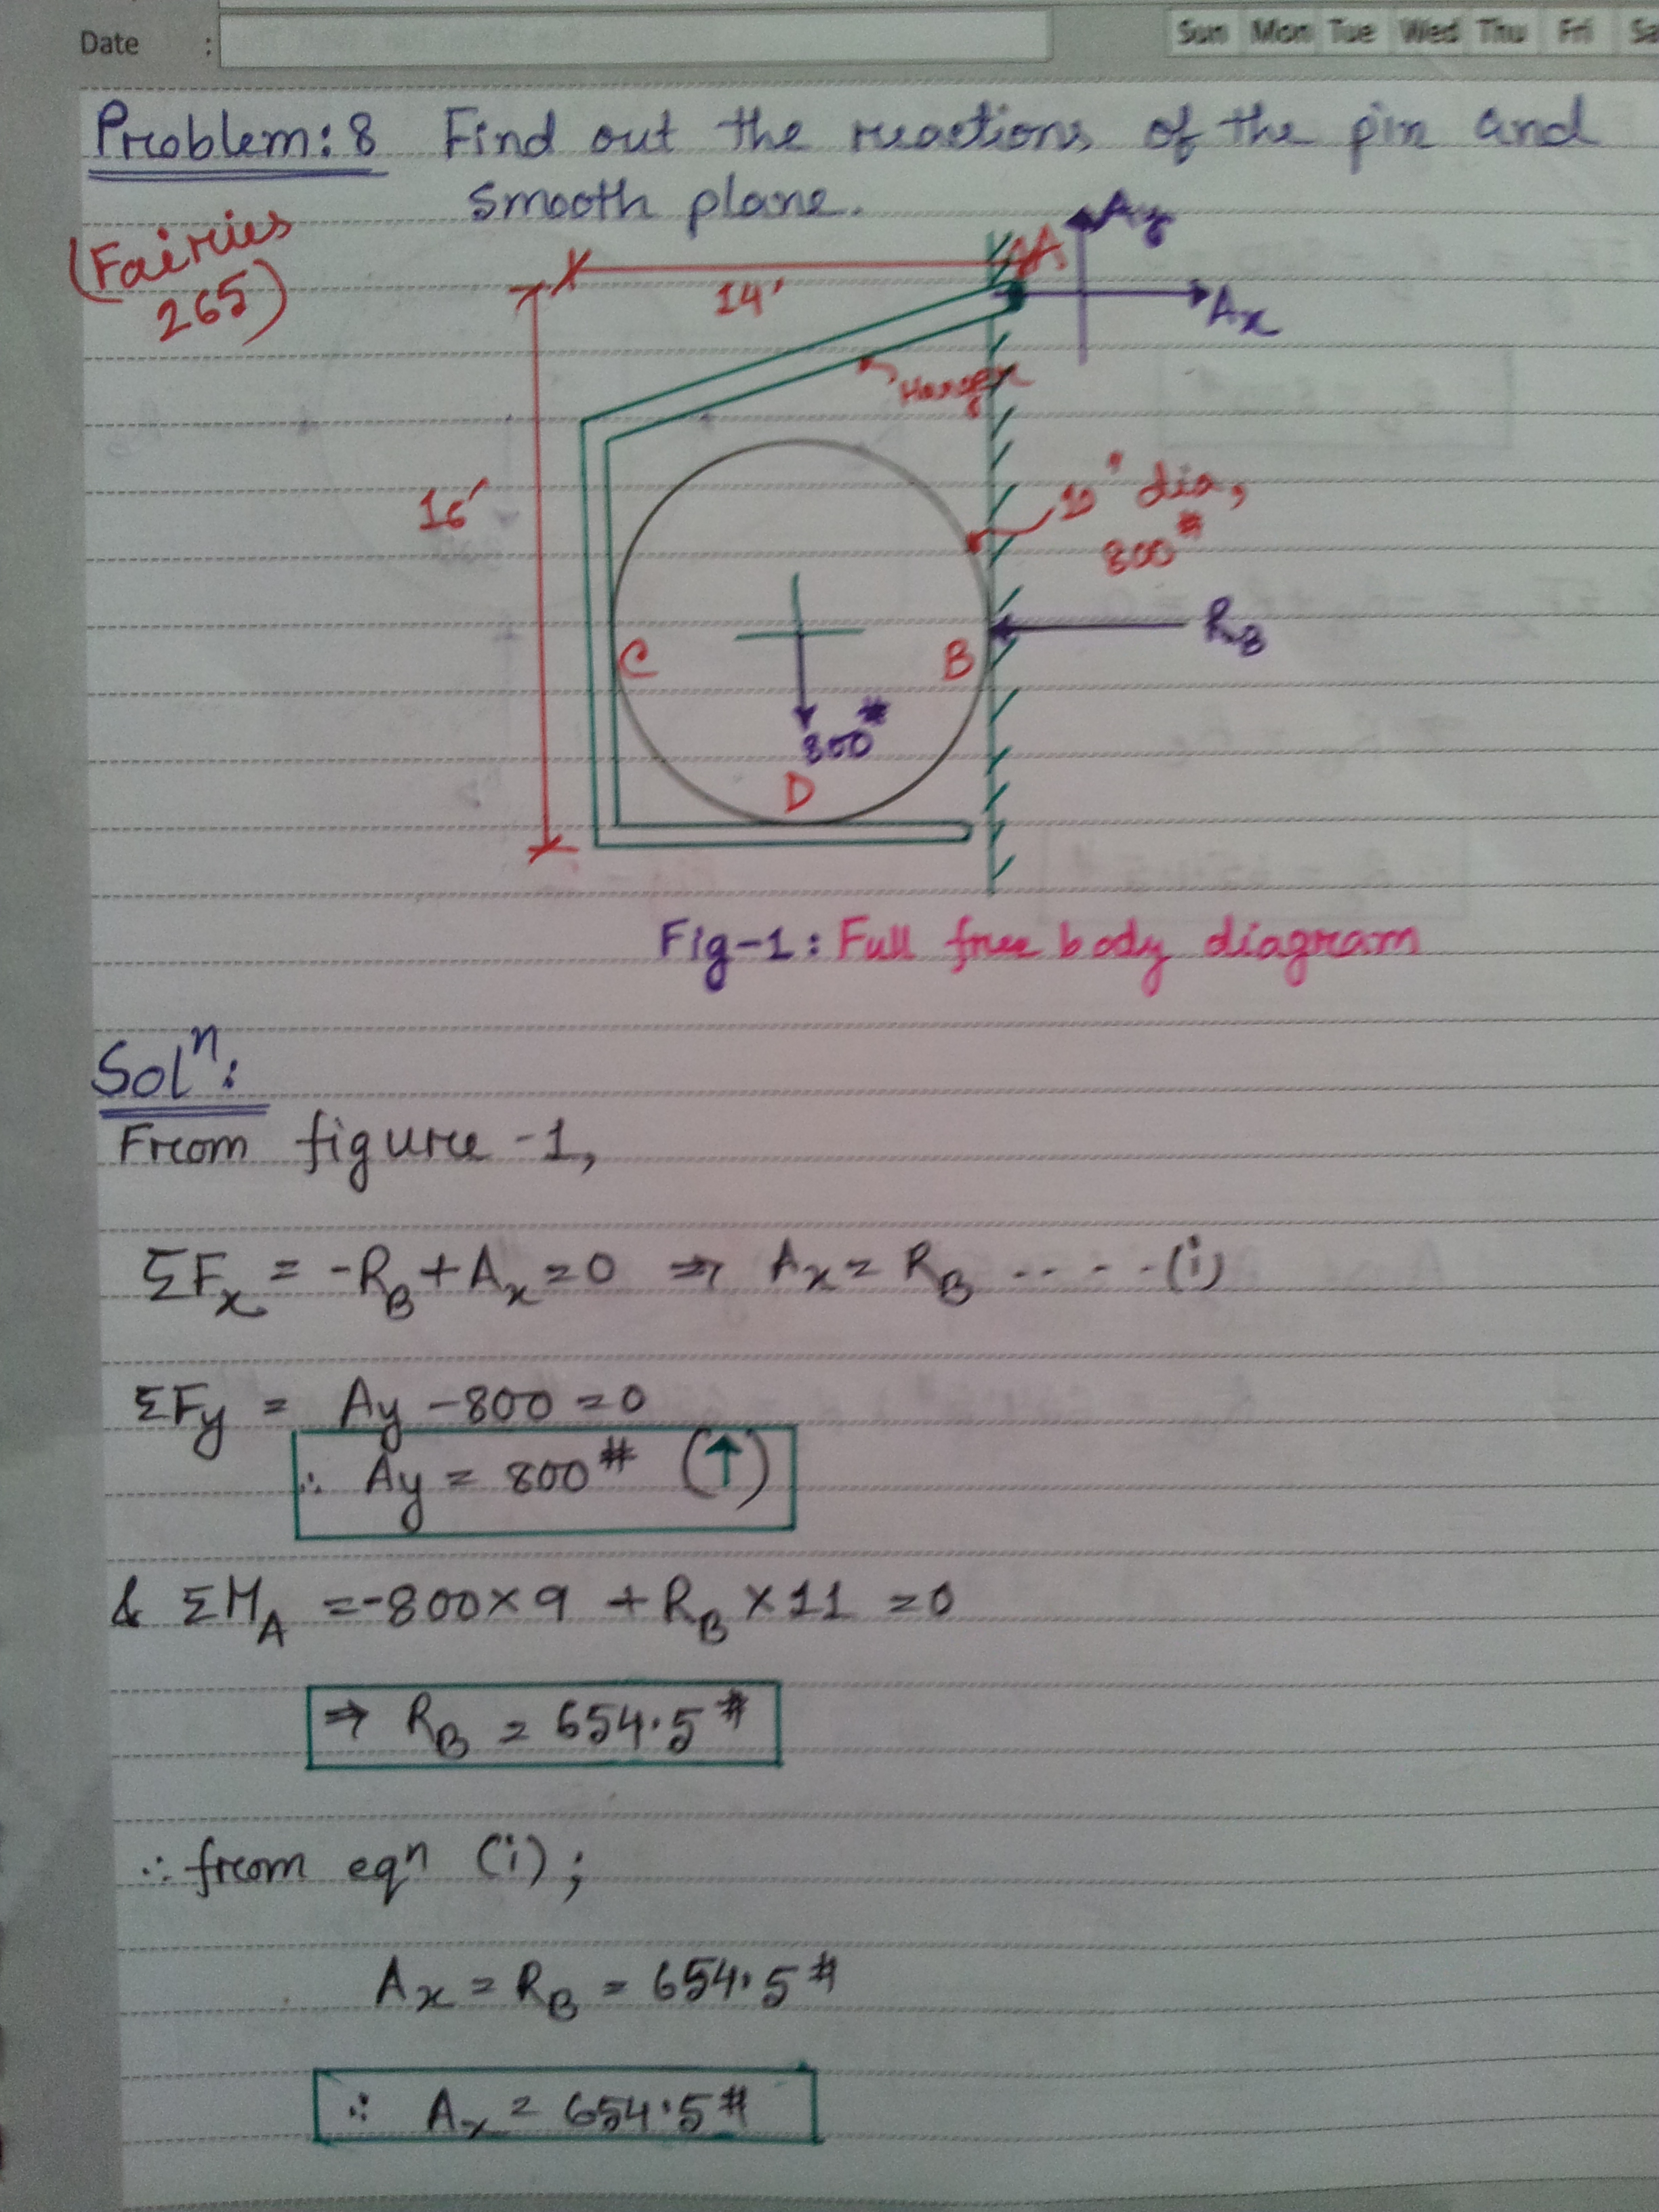 Date :
Sun Mon Tue Wed Thu Fri Sa
Problem: 8 Find out the reactions of the pin and
smooth plane.
(Fairies
265)
14'
A
Ay
Ax
Hanger
16'
10' dia,
800#
RB
C
B
800#
D
Fig-1: Full free body diagram
Solⁿ:
From figure -1,
ΣFx = -RB + Ax = 0 ⇒ Ax = RB ..... (i)
ΣFy = Ay - 800 = 0
∴ Ay = 800# (↑)
& ΣMA = -800×9 + RB ×11 = 0
⇒ RB = 654.5#
∴ from eqⁿ (i);
Ax = RB = 654.5#
∴ Ax = 654.5#